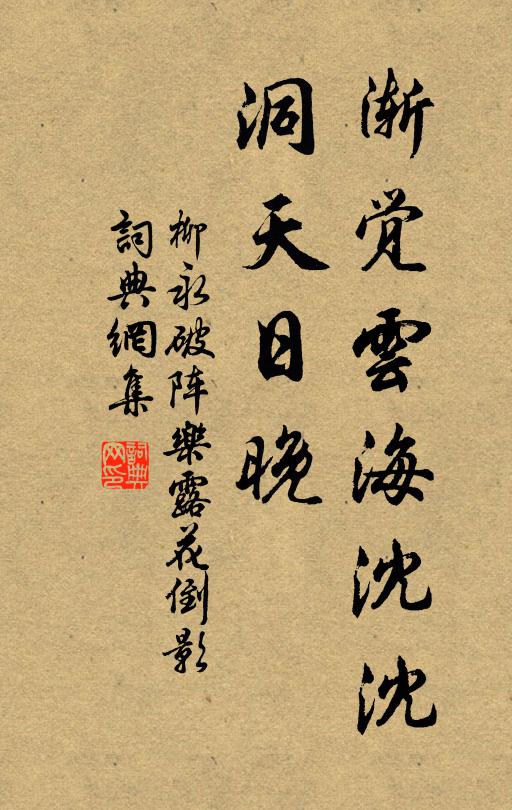 渐觉雲海沈沈
洞天日晚
柳永破阵樂露花倒影
詞典網集
詞典网印